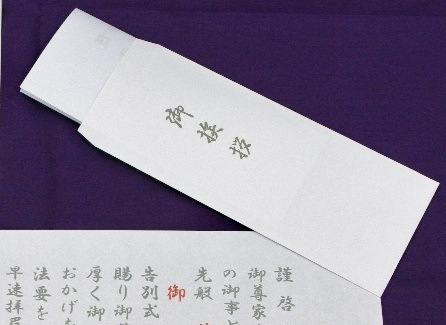 御挨拶
謹啓
御尊家
の御事と
先般
御
告別式
賜り御
厚く御
おかげを
法要を
早速拝